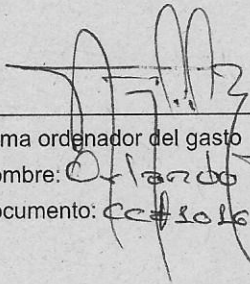 ma ordenador del gasto
ombre: Orlando
ocumento: CC